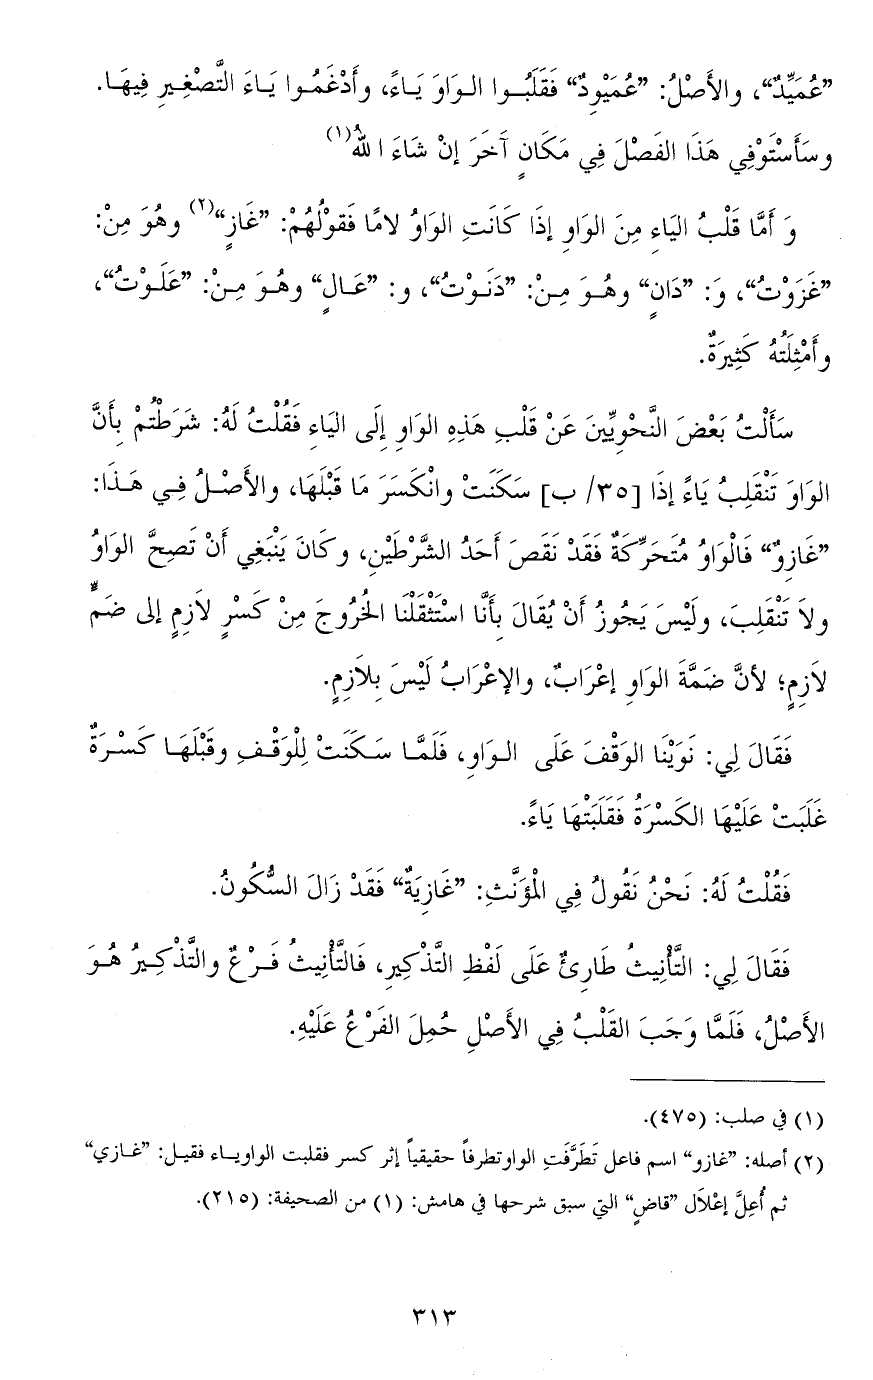 ”عُمَيِّدٌ“، والأَصْلُ: ”عُمَيْوِدٌ“ فَقَلَبُوا الوَاوَ يَاءً، وأَدْغَمُوا يَاءَ التَّصْغِيرِ فِيهَا.
وسَأَسْتَوْفِي هَذَا الفَصْلَ فِي مَكَانٍ آخَرَ إنْ شَاءَ اللهُ(١)
وَ أَمَّا قَلْبُ اليَاءِ مِنَ الوَاوِ إذَا كَانَتِ الوَاوُ لامًا فَقَولُهُمْ: ”غَازٍ“(٢) وهُوَ مِنْ:
”غَزَوْتُ“، وَ: ”دَانٍ“ وهُوَ مِنْ: ”دَنَوْتُ“، و: ”عَالٍ“ وهُوَ مِنْ: ”عَلَوْتُ“،
وأَمْثِلَتُهُ كَثِيرَةٌ.
سَأَلْتُ بَعْضَ النَّحْوِيِّينَ عَنْ قَلْبِ هَذِهِ الوَاوِ إلَى اليَاءِ فَقُلْتُ لَهُ: شَرَطْتُمْ بِأَنَّ
الوَاوَ تَنْقَلِبُ يَاءً إذَا [٣٥/ ب] سَكَنَتْ وانْكَسَرَ مَا قَبْلَهَا، والأَصْلُ فِي هَذَا:
”غَازِوٌ“ فَالْوَاوُ مُتَحَرِّكَةٌ فَقَدْ نَقَصَ أَحَدُ الشَّرْطَيْنِ، وكَانَ يَنْبَغِي أَنْ تَصِحَّ الوَاوُ
ولاَ تَنْقَلِبَ، ولَيْسَ يَجُوزُ أَنْ يُقَالَ بِأَنَّا اسْتَثْقَلْنَا الخُرُوجَ مِنْ كَسْرٍ لاَزِمٍ إلى ضَمٍّ
لاَزِمٍ؛ لأنَّ ضَمَّةَ الوَاوِ إعْرَابٌ، والإعْرَابُ لَيْسَ بِلاَزِمٍ.
فَقَالَ لِي: نَوَيْنَا الوَقْفَ عَلَى الوَاوِ، فَلَمَّا سَكَنَتْ لِلْوَقْفِ وقَبْلَهَا كَسْرَةٌ
غَلَبَتْ عَلَيْهَا الكَسْرَةُ فَقَلَبَتْهَا يَاءً.
فَقُلْتُ لَهُ: نَحْنُ نَقُولُ فِي الْمُؤَنَّثِ: ”غَازِيَةٌ“ فَقَدْ زَالَ السُّكُونُ.
فَقَالَ لِي: التَّأْنِيثُ طَارِئٌ عَلَى لَفْظِ التَّذْكِيرِ، فَالتَّأْنِيثُ فَرْعٌ والتَّذْكِيرُ هُوَ
الأَصْلُ، فَلَمَّا وَجَبَ القَلْبُ فِي الأَصْلِ حُمِلَ الفَرْعُ عَلَيْهِ.
(١) في صلب: (٤٧٥).
(٢) أصله: ”غازو“ اسم فاعل تَطَرَّفَتِ الواو تطرفاً حقيقياً إثر كسر فقلبت الواو ياء فقيل: ”غازي“
ثم أُعِلَّ إعْلاَل ”قاضٍ“ التي سبق شرحها في هامش: (١) من الصحيفة: (٢١٥).
٣١٣